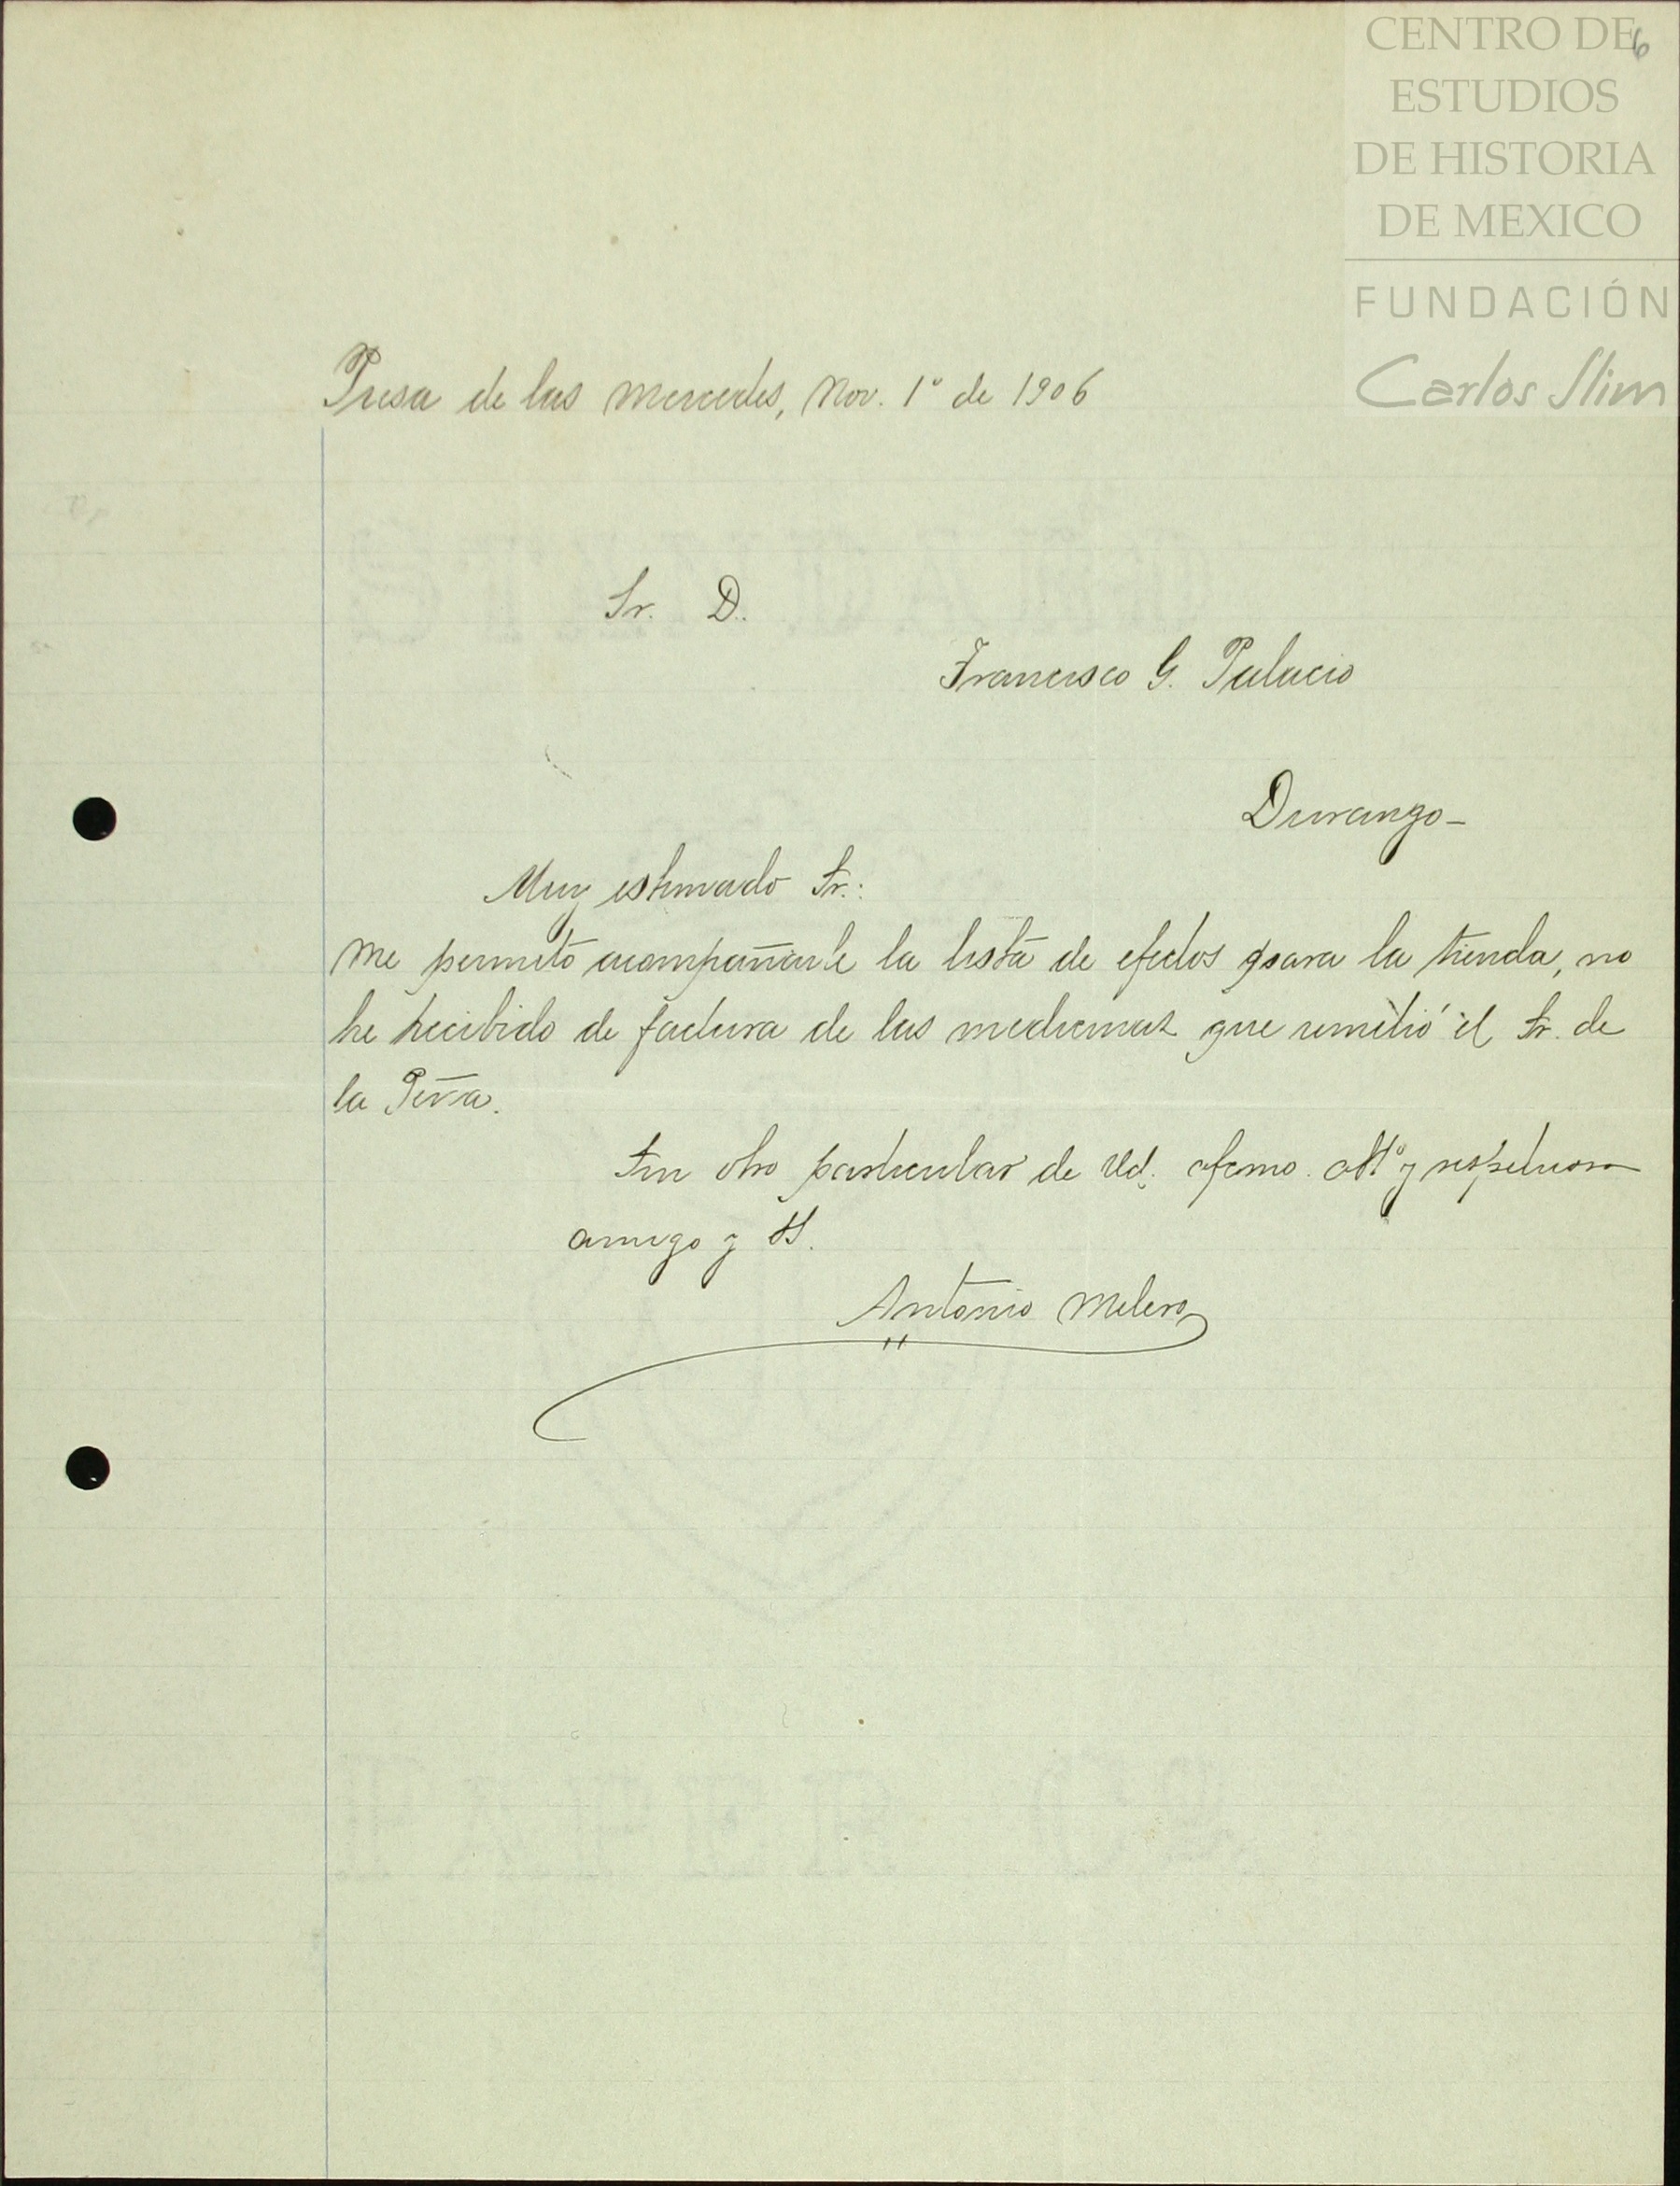 CENTRO DE
ESTUDIOS
DE HISTORIA
DE MEXICO
FUNDACIÓN
Carlos Slim
6
Presa de las Mercedes, Nov. 1º de 1906
Sr. D.
Francisco G. Palacio
Durango-
Muy estimado Sr.:
Me permito acompañarle la lista de efectos para la tienda, no
he recibido de factura de las medicinas que remitió el Sr. de
la Peña.
Sin otro particular de Ud. afmo. att.º y respetuoso
amigo y SS.
Antonio Melero